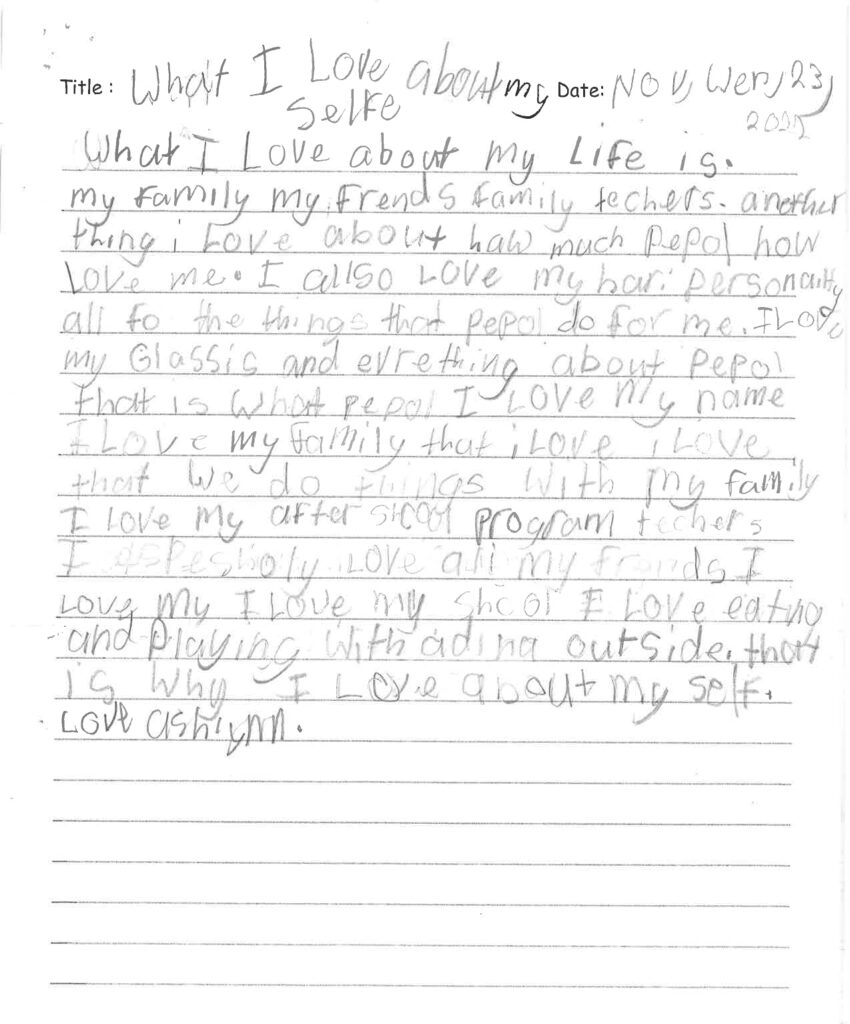 Title : What I Love about my Date: Nov, Wen, 23,
selfe 2025
What I Love about my Life is.
my family my frends family techers. another
thing i Love about haw much pepol how
Love me. I allso Love my hari personalty
all fo the things that pepol do for me. I Love
my Glassis and evrething about pepol
that is what pepol I Love my name
I Love my family that i Love i Love
that we do things with my family
I Love my after shcool program techers
I espesholy Love all my frends I
Love my I Love my shcool I Love eating
and playing with adina outside. that
is why I Love about my self.
Love ashlynn.